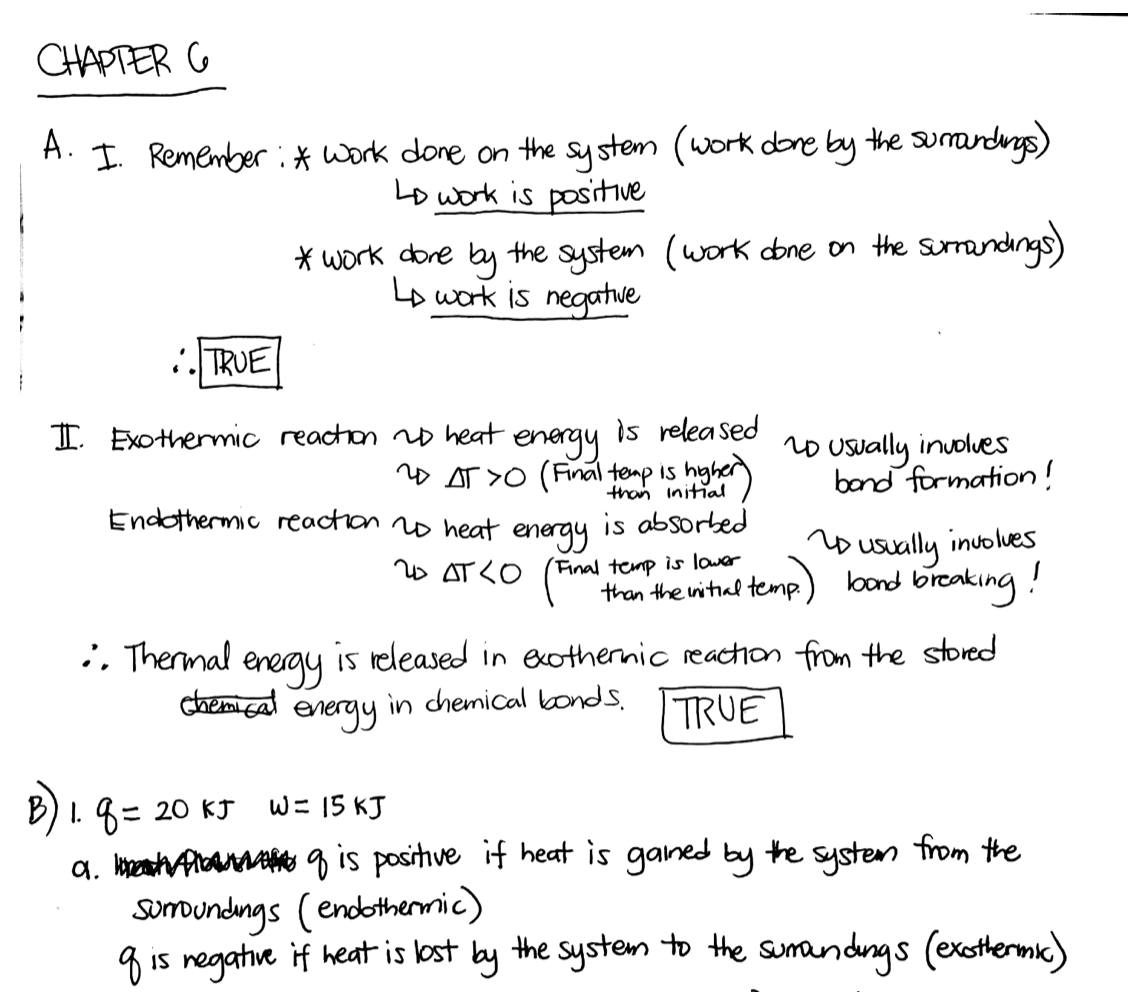 CHAPTER 6
A. I. Remember : * work done on the system (work done by the surroundings)
↳ work is positive
* work done by the system (work done on the surroundings)
↳ work is negative
∴ TRUE
II. Exothermic reaction → heat energy is released → usually involves
→ ΔT > 0 (Final temp is higher bond formation!
than initial)
Endothermic reaction → heat energy is absorbed → usually involves
→ ΔT < 0 (Final temp is lower bond breaking!
than the initial temp.)
∴ Thermal energy is released in exothermic reaction from the stored
chemical energy in chemical bonds. TRUE
B) 1. q = 20 KJ W = 15 KJ
a. q is positive if heat is gained by the system from the
surroundings (endothermic)
q is negative if heat is lost by the system to the surroundings (exothermic)